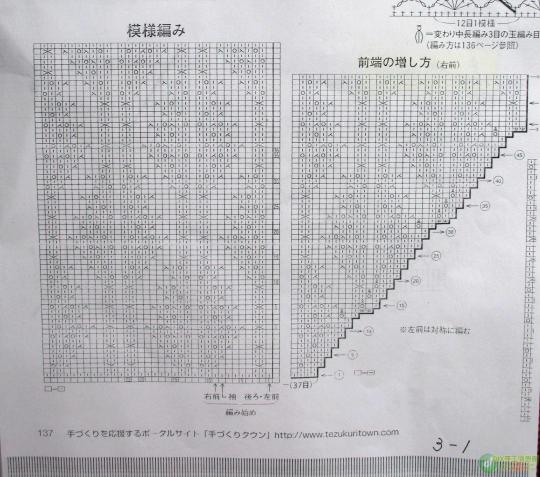 12目1模様
=変わり中長編み3目の玉編み目
(編み方は136ページ参照)
模様編み
前端の増し方(右前)
45
40
35
30
25
20
15
10
5
1
※左前は対称に編む
(37目)
右前 袖 後ろ・左前
編み始め
137 手づくりを応援するポータルサイト「手づくりタウン」http://www.tezukuritown.com
3-1